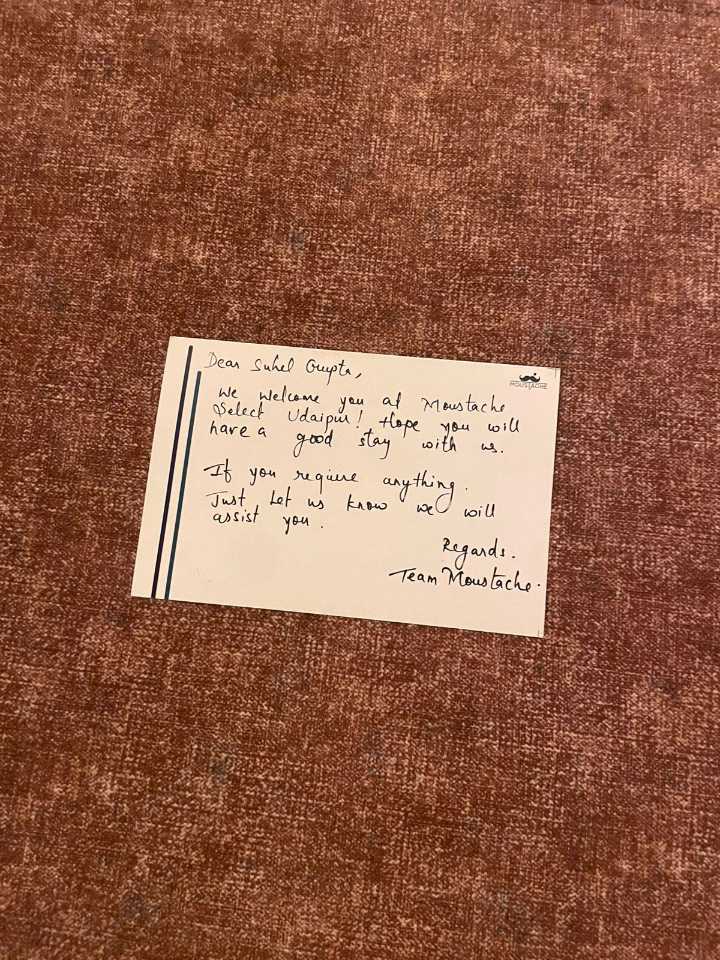 Dear Suhel Gupta,
MOUSTACHE
We Welcome you at Moustache
Select Udaipur! Hope you will
have a good stay with us.
If you require anything.
Just Let us know we will
assist you.
Regards.
Team Moustache.